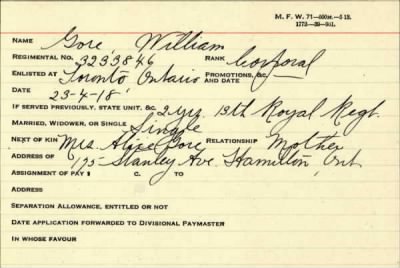 M. F. W. 71—500M.—5 18.
1772—39—941.
NAME Gore, William
REGIMENTAL NO. 3233846 RANK Corporal
ENLISTED AT Toronto Ontario PROMOTIONS, &C. AND DATE
DATE 23-4-18
IF SERVED PREVIOUSLY, STATE UNIT, &C. 2 yrs. 13th Royal Regt.
MARRIED, WIDOWER, OR SINGLE Single
NEXT OF KIN Mrs. Alice Gore RELATIONSHIP Mother
ADDRESS OF 175 Stanley Ave. Hamilton, Ont.
ASSIGNMENT OF PAY $ C. TO
ADDRESS
SEPARATION ALLOWANCE, ENTITLED OR NOT
DATE APPLICATION FORWARDED TO DIVISIONAL PAYMASTER
IN WHOSE FAVOUR